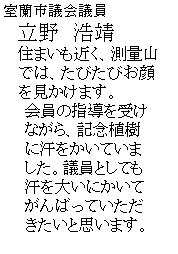 室蘭市議会議員
立野　浩靖
住まいも近く、測量山
では、たびたびお顔
を見かけます。
会員の指導を受け
ながら、記念植樹
に汗をかいていま
した。議員としても
汗を大いにかいて
がんばっていただ
きたいと思います。